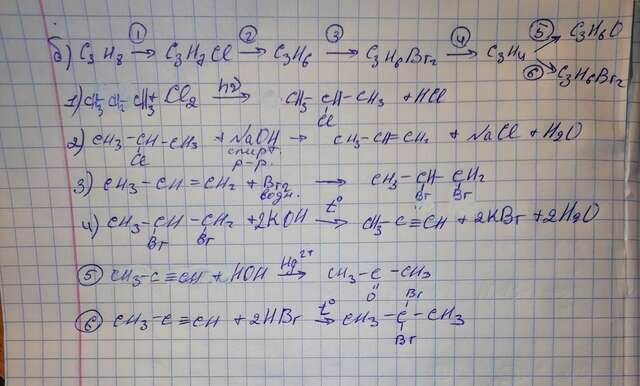 б) C₃H₈ →① C₃H₇Cl →② C₃H₆ →③ C₃H₆Br₂ →④ C₃H₄ →⑤ C₃H₆O
→⑥ C₃H₆Br₂
1) CH₃ CH₂ CH₃ + Cl₂ →hν CH₃ CH – CH₃ + HCl
Cl
2) CH₃ – CH – CH₃ + NaOH → CH₃ – CH = CH₂ + NaCl + H₂O
Cl спирт. р-р.
3) CH₃ – CH = CH₂ + Br₂ → CH₃ – CH – CH₂
водн. Br Br
4) CH₃ – CH – CH₂ + 2KOH →t° CH₃ – C ≡ CH + 2KBr + 2H₂O
Br Br
⑤ CH₃ – C ≡ CH + HOH →Hg²⁺ CH₃ – C – CH₃
O
Br
⑥ CH₃ – C ≡ CH + 2HBr →t° CH₃ – C – CH₃
Br